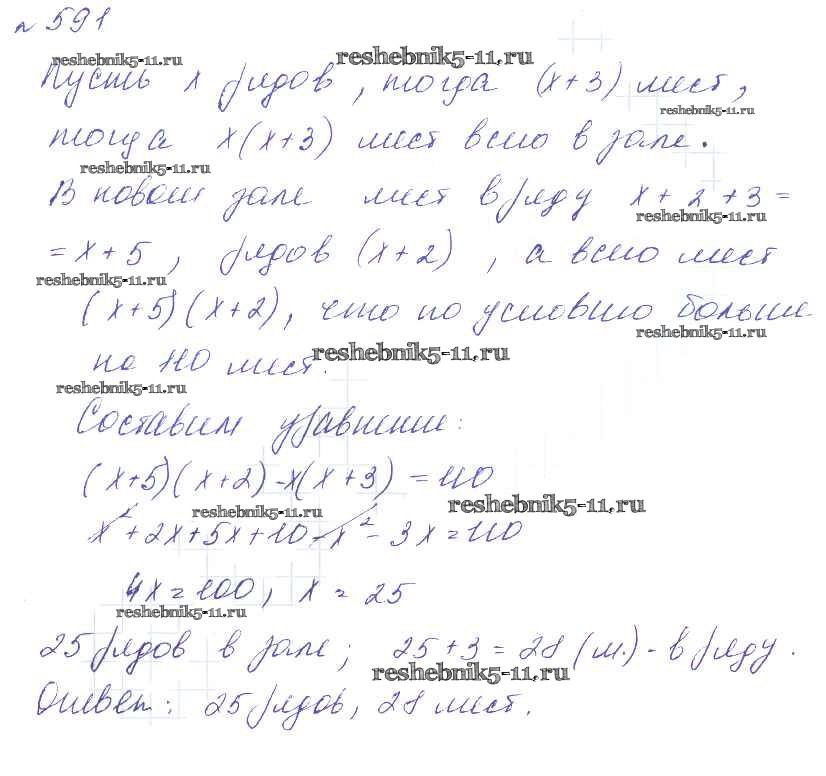 № 591
reshebnik5-11.ru
reshebnik5-11.ru
Пусть x рядов, тогда (x+3) мест,
reshebnik5-11.ru
тогда x(x+3) мест всего в зале.
reshebnik5-11.ru
В новом зале мест в ряду x+2+3=
reshebnik5-11.ru
=x+5, рядов (x+2), а всего мест
reshebnik5-11.ru
(x+5)(x+2), что по условию больше
reshebnik5-11.ru
на 110 мест.
reshebnik5-11.ru
reshebnik5-11.ru
Составим уравнение:
(x+5)(x+2)-x(x+3)=110
reshebnik5-11.ru
reshebnik5-11.ru
x²+2x+5x+10-x²-3x=110
4x=100, x=25
reshebnik5-11.ru
25 рядов в зале; 25+3=28 (м.) - в ряду.
reshebnik5-11.ru
Ответ: 25 рядов, 28 мест.